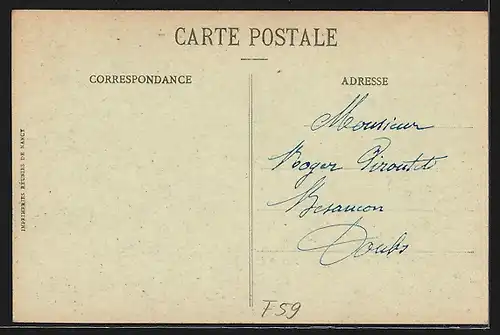 CARTE POSTALE
CORRESPONDANCE
ADRESSE
Monsieur
Roger Piroutet
Besancon
Doubs
IMPRIMERIES RÉUNIES DE NANCY
F59